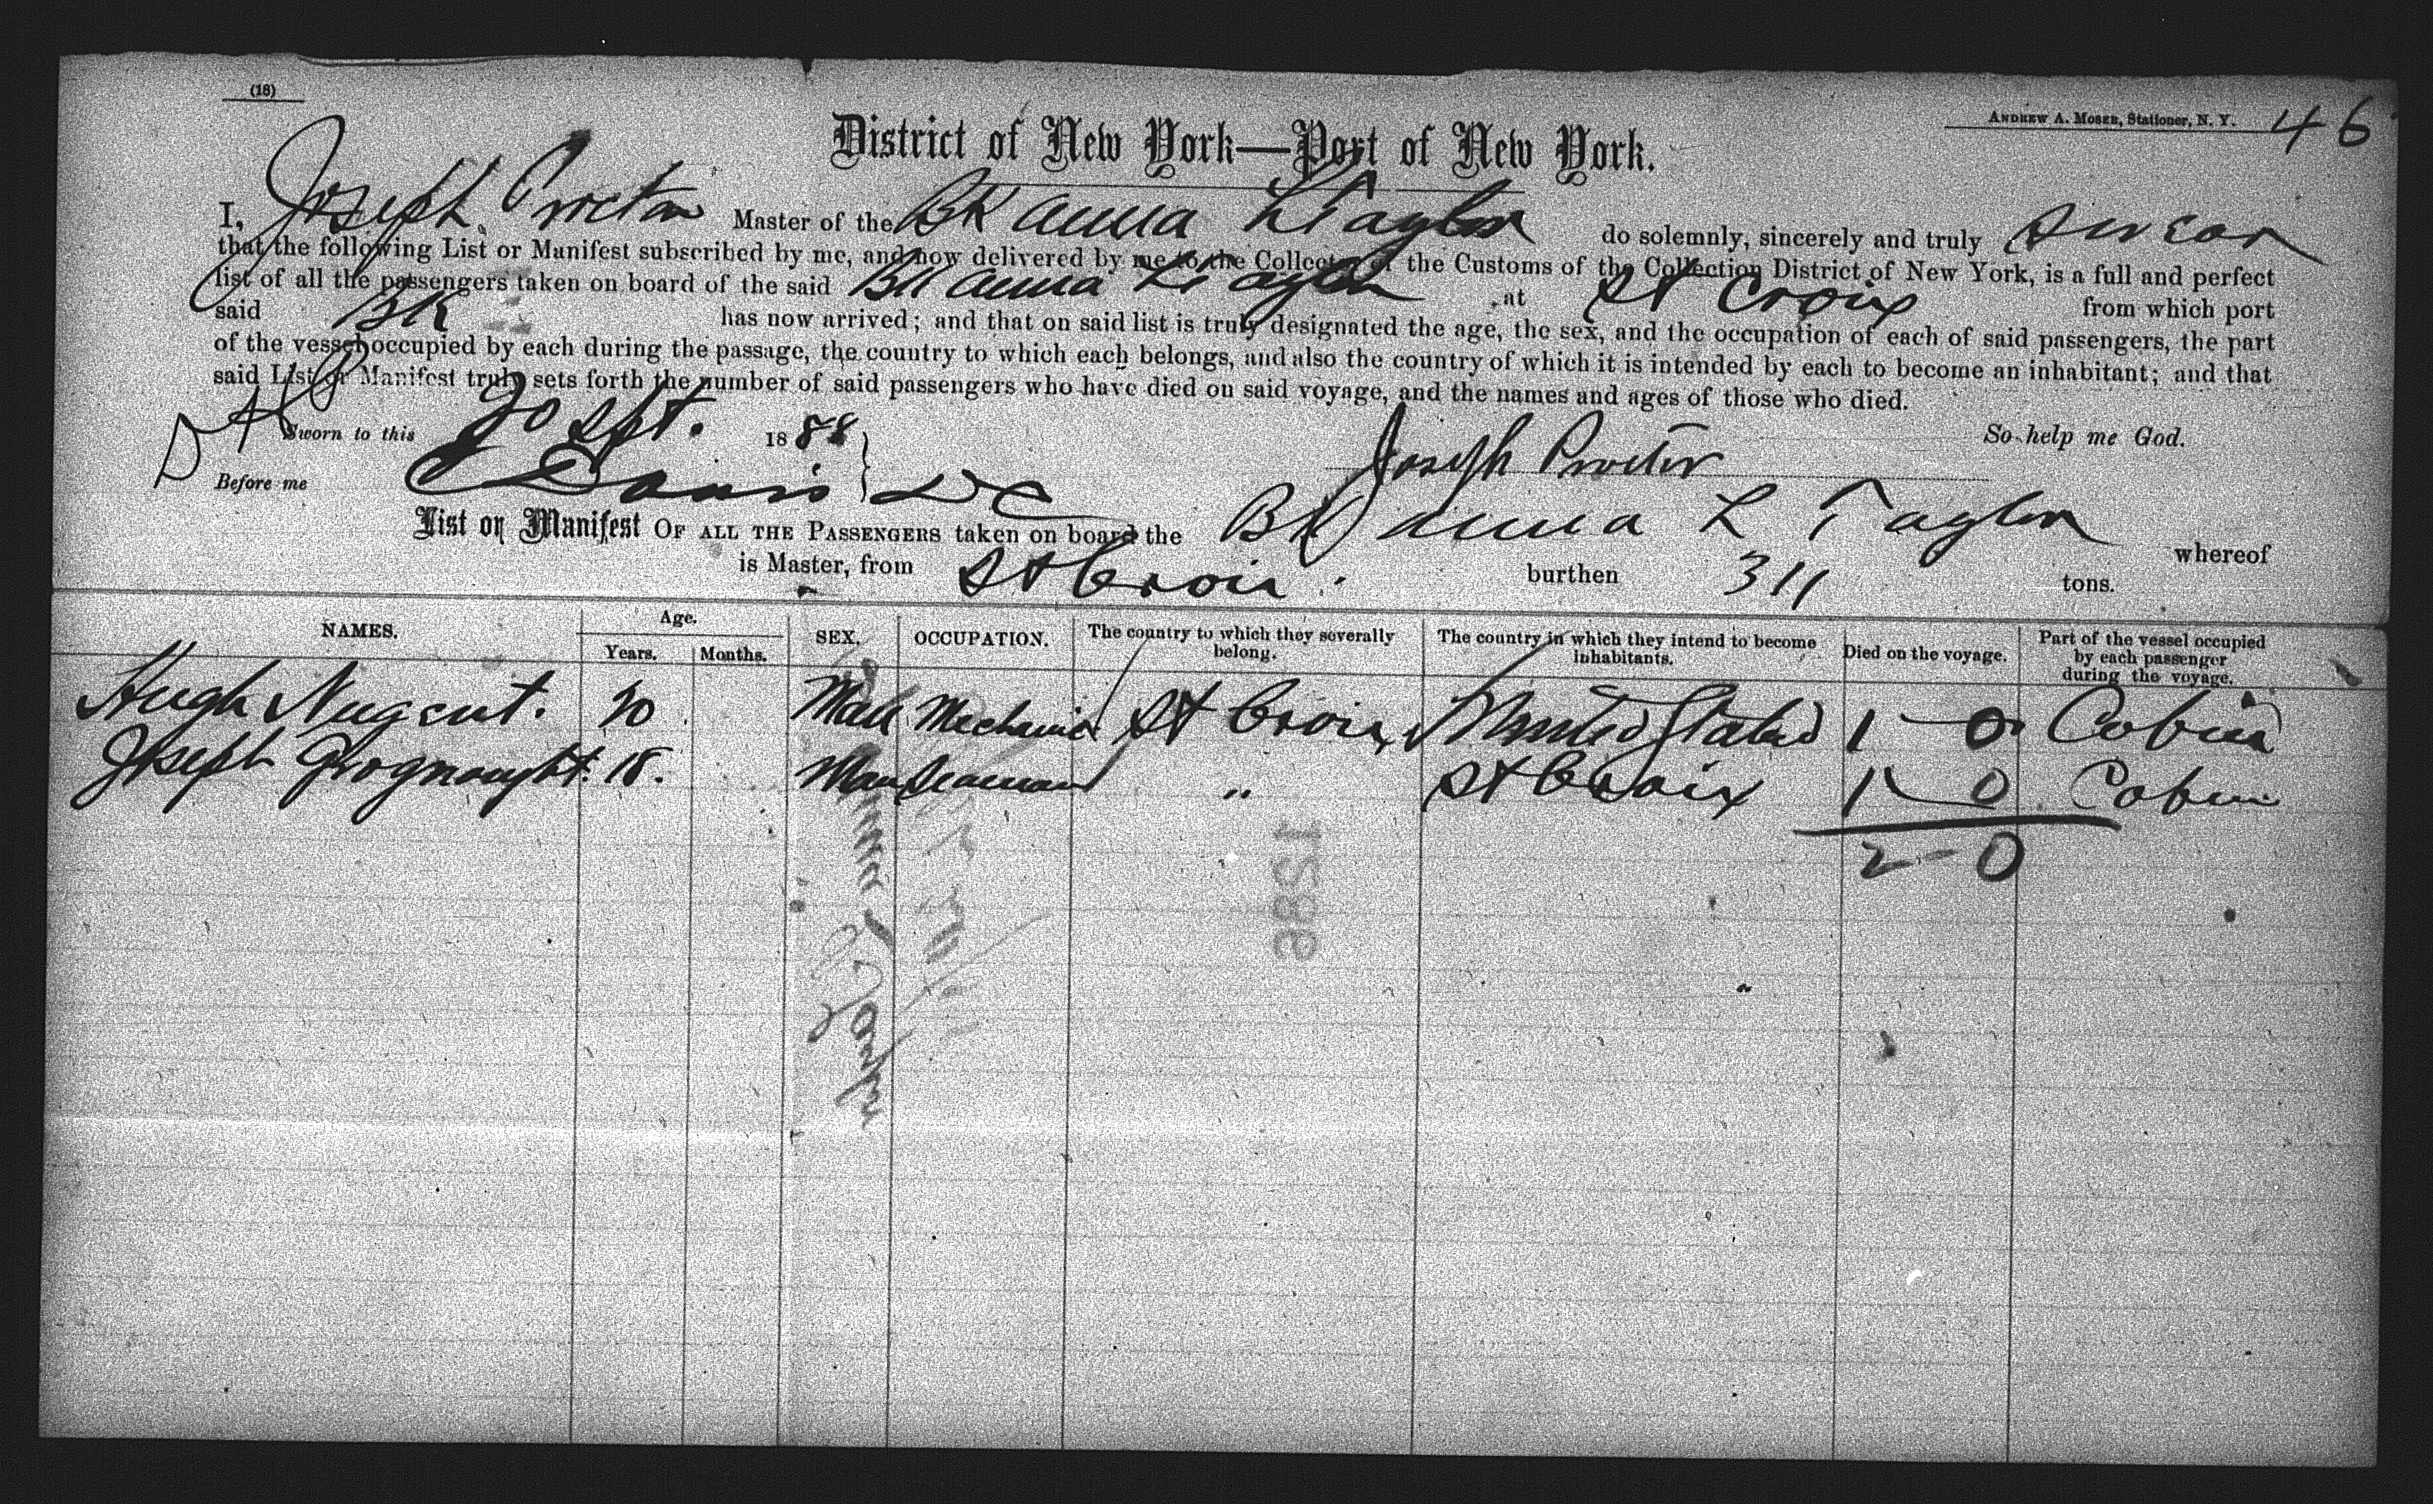 (18)
ANDREW A. MOSER, Stationer, N. Y. 46
District of New York—Port of New York.
I, Joseph Procton Master of the BK Anna L Taylor do solemnly, sincerely and truly swear
that the following List or Manifest subscribed by me, and now delivered by me to the Collector of the Customs of the Collection District of New York, is a full and perfect
list of all the passengers taken on board of the said BK Anna L Taylor at St Croix from which port
said BK has now arrived; and that on said list is truly designated the age, the sex, and the occupation of each of said passengers, the part
of the vessel occupied by each during the passage, the country to which each belongs, and also the country of which it is intended by each to become an inhabitant; and that
said List or Manifest truly sets forth the number of said passengers who have died on said voyage, and the names and ages of those who died.
Sworn to this 20 Sept. 1888 So help me God.
Before me Davis DC Joseph Procter
List or Manifest OF ALL THE PASSENGERS taken on board the BK Anna L Taylor whereof
is Master, from St Croix. burthen 311 tons.
NAMES. Age. Years. Months. SEX. OCCUPATION. The country to which they severally belong. The country in which they intend to become inhabitants. Died on the voyage. Part of the vessel occupied by each passenger during the voyage.
Hugh Nugent. Male Mechanic St Croix United States 1—0 Cabin
Joseph 18. Seaman " St Croix 1—0 Cabin
2—0